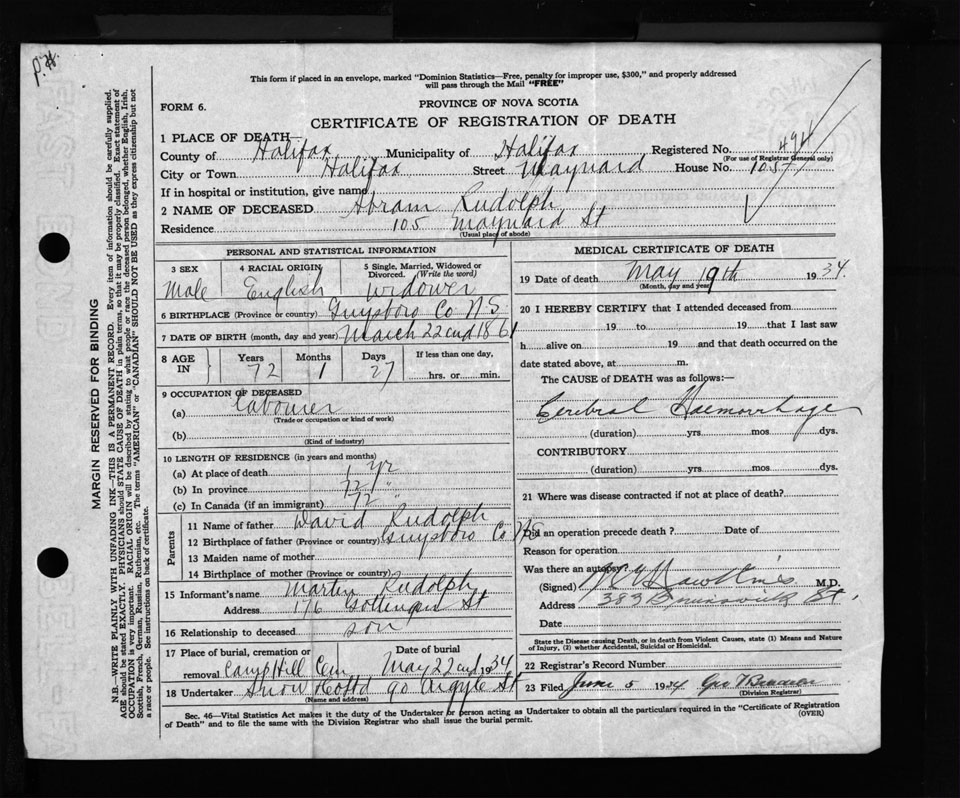 P.H.
This form if placed in an envelope, marked "Dominion Statistics—Free, penalty for improper use, $300," and properly addressed
will pass through the Mail "FREE"
FORM 6.
PROVINCE OF NOVA SCOTIA
CERTIFICATE OF REGISTRATION OF DEATH
1 PLACE OF DEATH—
County of Halifax Municipality of Halifax Registered No. 494
(For use of Registrar General only)
City or Town Halifax Street Maynard House No. 105
If in hospital or institution, give name
2 NAME OF DECEASED Abram Rudolph
Residence 105 Maynard St
(Usual place of abode)
PERSONAL AND STATISTICAL INFORMATION
3 SEX Male
4 RACIAL ORIGIN English
5 Single, Married, Widowed or Divorced. (Write the word) Widower
6 BIRTHPLACE (Province or country) Guysboro Co N S
7 DATE OF BIRTH (month, day and year) March 22cnd 1861
8 AGE IN Years 72 Months 1 Days 27 If less than one day, hrs. or min.
9 OCCUPATION OF DECEASED
(a) Labourer
(Trade or occupation or kind of work)
(b)
(Kind of industry)
10 LENGTH OF RESIDENCE (in years and months)
(a) At place of death 1 yr
(b) In province 72 "
(c) In Canada (if an immigrant) 72 "
Parents
11 Name of father David Rudolph
12 Birthplace of father (Province or country) Guysboro Co N S
13 Maiden name of mother
14 Birthplace of mother (Province or country)
15 Informant's name Martin Rudolph
Address 176 Gottingen St
16 Relationship to deceased son
17 Place of burial, cremation or removal Camp Hill Cem Date of burial May 22cnd 1934
18 Undertaker Snow & Co Ltd 90 Argyle St
(Name and address)
MEDICAL CERTIFICATE OF DEATH
19 Date of death May 19th 1934.
(Month, day and year)
20 I HEREBY CERTIFY that I attended deceased from
19 to 19 that I last saw
h alive on 19 and that death occurred on the
date stated above, at m.
The CAUSE of DEATH was as follows:—
Cerebral Haemorrhage
(duration) yrs mos dys.
CONTRIBUTORY
(duration) yrs mos dys.
21 Where was disease contracted if not at place of death?
Did an operation precede death? Date of
Reason for operation
Was there an autopsy?
(Signed) Hawkins M.D.
Address 383 Brunswick St.
Date
State the Disease causing Death, or in death from Violent Causes, state (1) Means and Nature
of Injury, (2) whether Accidental, Suicidal or Homicidal.
22 Registrar's Record Number
23 Filed June 5 1934 Geo
(Division Registrar)
Sec. 46—Vital Statistics Act makes it the duty of the Undertaker or person acting as Undertaker to obtain all the particulars required in the "Certificate of Registration
of Death" and to file the same with the Division Registrar who shall issue the burial permit.
(OVER)
MARGIN RESERVED FOR BINDING
N.B.—WRITE PLAINLY WITH UNFADING INK—THIS IS A PERMANENT RECORD. Every item of information should be carefully supplied.
AGE should be stated EXACTLY. PHYSICIANS should STATE CAUSE OF DEATH in plain terms, so that it may be properly classified. Exact statement of
OCCUPATION is very important. RACIAL ORIGIN will be described by stating to what people or race the deceased person belonged, whether English, Irish,
Scottish, French, German, Russian, Ruthenian, etc. The terms "AMERICAN" or "CANADIAN" SHOULD NOT BE USED as they express citizenship but not
a race or people. See instructions on back of certificate.